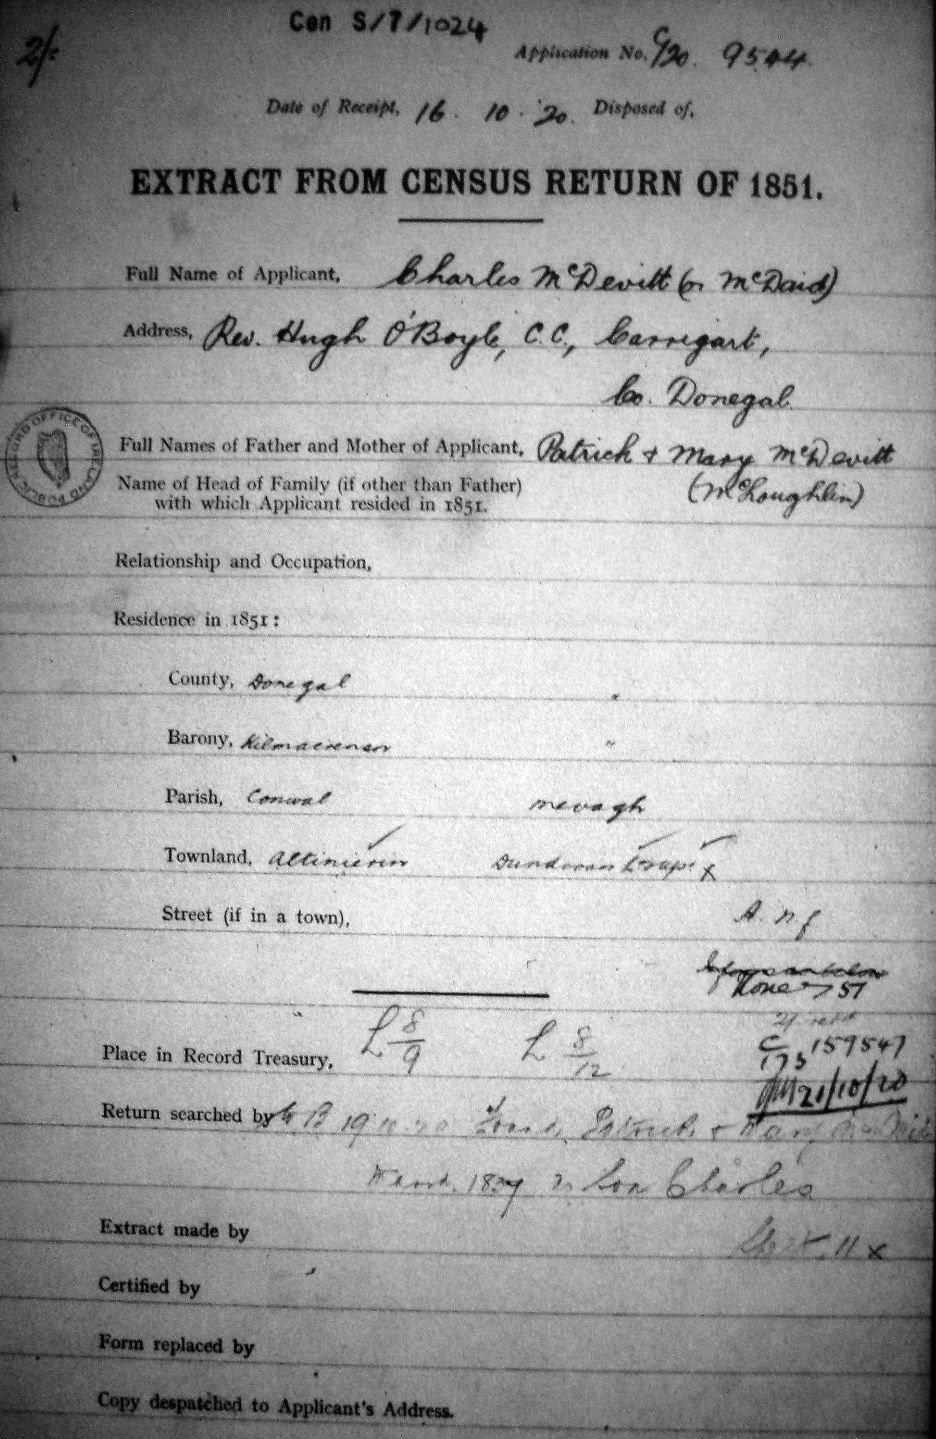 Cen S/7/1024
2/-
Application No. C/20. 9504.
Date of Receipt, 16 . 10 . '20. Disposed of,
EXTRACT FROM CENSUS RETURN OF 1851.
Full Name of Applicant, Charles McDevitt (or McDaid)
Address, Rev. Hugh O'Boyle, C.C., Carrigart,
Co. Donegal.
PUBLIC RECORD OFFICE OF IRELAND
Full Names of Father and Mother of Applicant, Patrick + Mary McDevitt
Name of Head of Family (if other than Father) (McLoughlin)
with which Applicant resided in 1851.
Relationship and Occupation,
Residence in 1851:
County, Donegal "
Barony, Kilmacrenan "
Parish, Conwal Mevagh
Townland, x
Street (if in a town), A. N f
None 51
Place in Record Treasury, L 8/9 L 8/12
C/173 159547
21/10/20
Return searched by 19 10 20 Found Patrick + Mary
Mard. 18 Son Charles
Extract made by 11 x
Certified by
Form replaced by
Copy despatched to Applicant's Address.